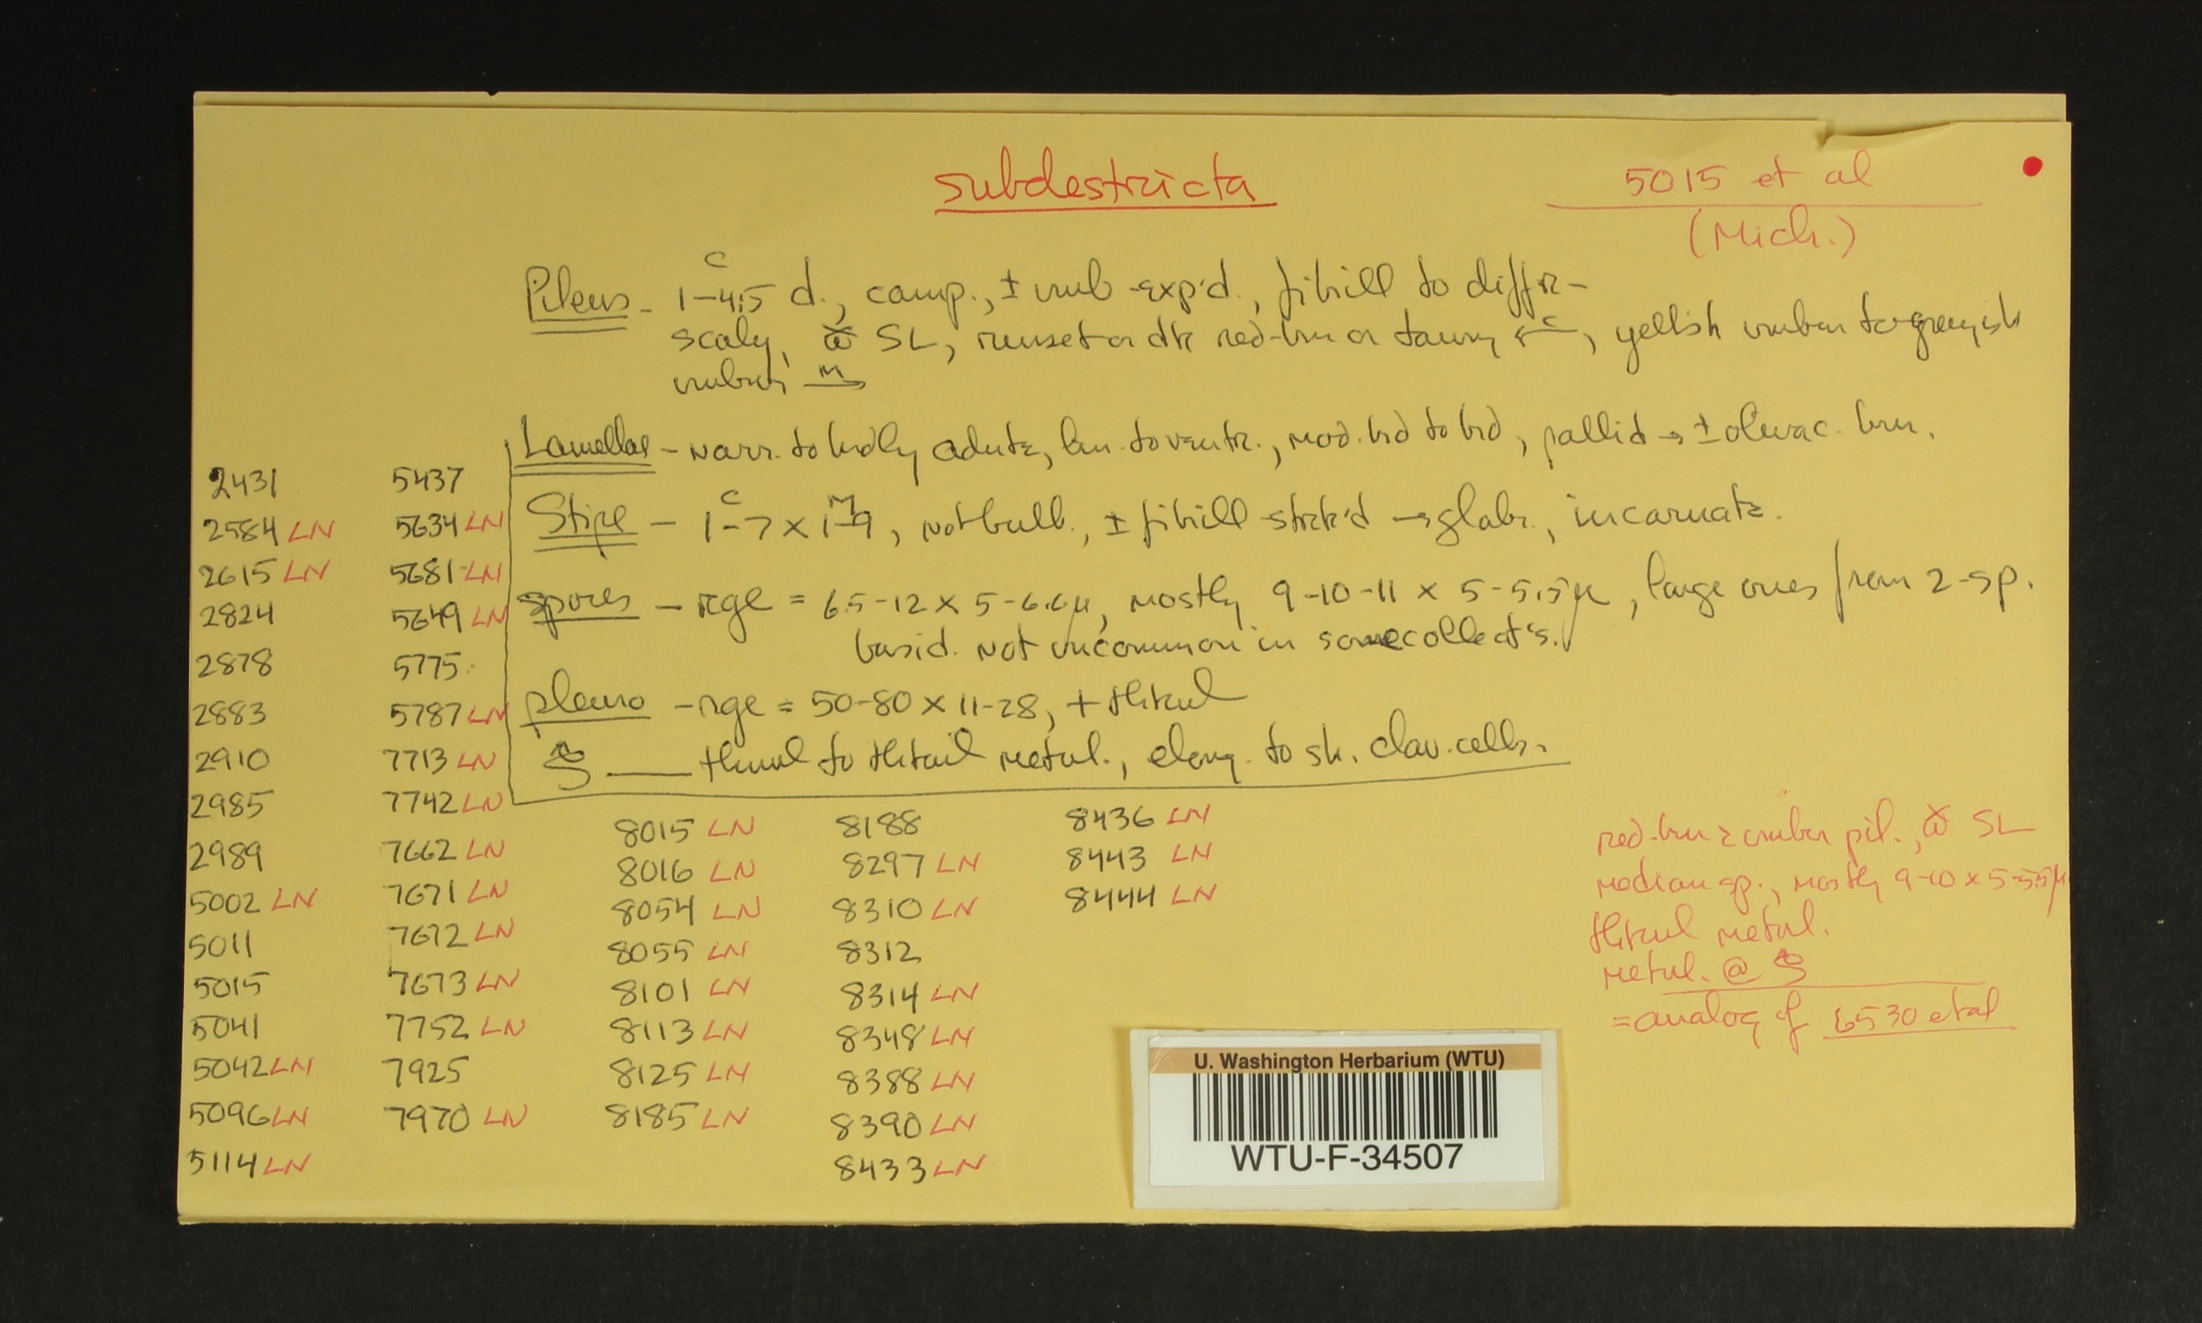 subdestricta
5015 et al
(Mich.)
Pileus - 1-4.5 c d., camp., ± umb-exp'd., fibrill to diffr-
scaly, SL, russet or dk red-brn or tawny, yellish umber to greyish
umber M
Lamellae - narr. to brdly adnate, lin. to ventr., mod. brd to brd, pallid → ± olivac. brn.
Stipe - 1-7 C x 1-9 M, not bulb., ± fibrill-strk'd → glabr., incarnate.
spores - rge = 6.5-12 x 5-6.6µ, mostly 9-10-11 x 5-5.5µ, large ones from 2-sp.
basid. not uncommon in some collect's.
pleuro - rge = 50-80 x 11-28, + thkwl
thnwl to thkwl metul., elong. to sh. clav. cells.
2431
2584 LN
2615 LN
2824
2878
2883
2910
2985
2989
5002 LN
5011
5015
5041
5042 LN
5096 LN
5114 LN
5437
5634 LN
5681 LN
5649 LN
5775
5787 LN
7713 LN
7742 LN
7662 LN
7671 LN
7672 LN
7673 LN
7752 LN
7925
7970 LN
8015 LN
8016 LN
8054 LN
8055 LN
8101 LN
8113 LN
8125 LN
8185 LN
8188
8297 LN
8310 LN
8312
8314 LN
8348 LN
8388 LN
8390 LN
8433 LN
8436 LN
8443 LN
8444 LN
red-brn umber pil., SL
median sp., mostly 9-10 x 5-5.5µ
thkwl metul.
metul. @
= analog of 6530 et al
U. Washington Herbarium (WTU)
WTU-F-34507